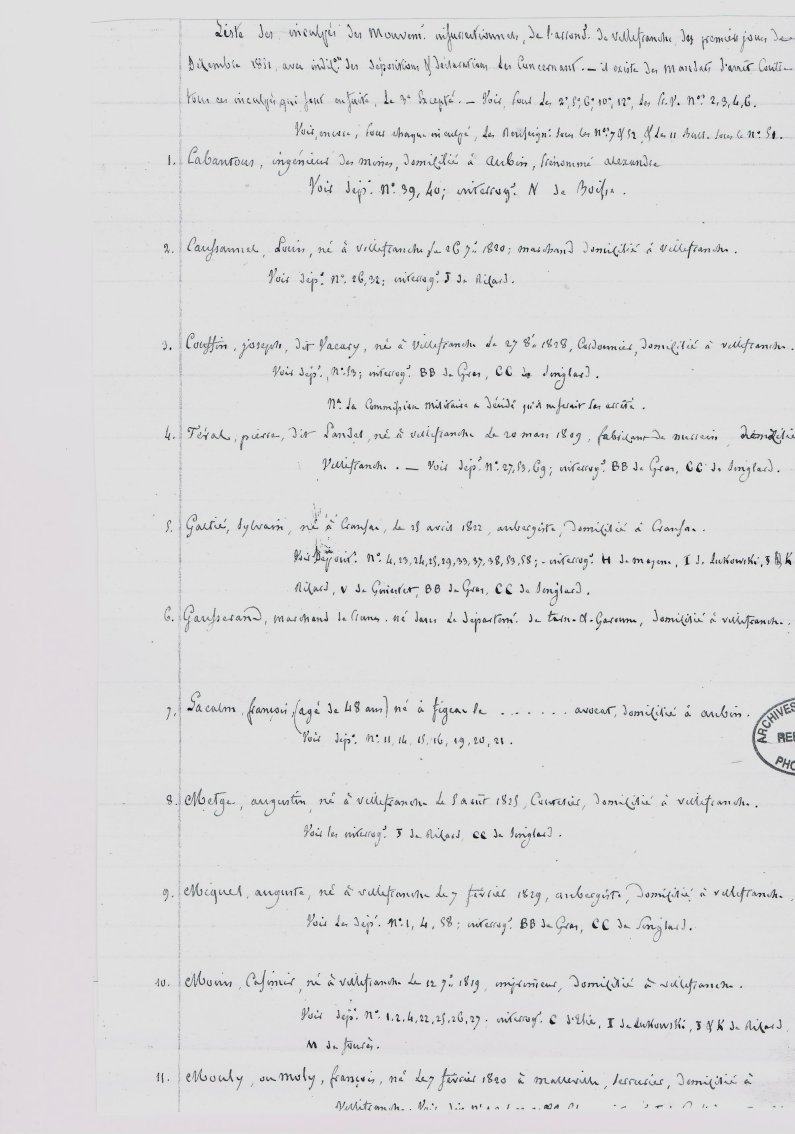 Liste des inculpés des Mouvemt insurrectionnels, de l'arrond. de villefranche, des premiers jours de
Décembre 1851, avec indicon des dépositions & déclarations les Concernant. — il existe des mandats d'arrêt Contre
tous ces inculpés qui sont en fuite, le 3e Excepté. — Voir, sous les 2°, 5°, 6°, 10°, 12°, les P.V. Nos 2, 3, 4, 6.
Voir, encore, sous chaque inculpé, les Renseignt sous les nos 7 & 52, & les 11 sous le no 51.
1. Cabantous, ingénieur des mines, domicilié à Aubin, prénommé alexandre
Voir dépon No 39, 40; interrogre N de Boisse.
2. Caussanel, Louis, né à villefranche, le 26 7bre 1820; marchand domicilié à villefranche.
Voir dépon No 26, 32; interrogre J de Rilard.
3. Couffin, joseph, dit Vacary, né à villefranche le 27 8bre 1828, Cordonnier, domicilié à villefranche.
Voir dépon, No 53; interrogre BB de Gras, CC de Singlard.
Na La Commission militaire a décidé qu'il ne serait pas arrêté.
4. Féral, pierre, dit Landel, né à villefranche le 20 mars 1809, fabricant de domicilié
Villefranche. — Voir dépon No 27, 53, 69; interrogre BB de Gras, CC de Singlard.
5. Galtié, Sylvain, né à Cransac, le 25 avril 1822, aubergiste, domicilié à Cransac.
Voir No 4, 23, 24, 25, 29, 33, 37, 38, 53, 58; - interrogre H de mazenc, I de Lukowski, J & K
Rilard, V de BB de Gras, CC de Singlard.
6. Gausserand, marchand de né dans le département de tarn-&-Garonne, domicilié à villefranche.
7. Lacalm, françois, (agé de 48 ans) né à figeac le . . . . . . avocat, domicilié à aubin.
Voir dépon No 11, 14, 15, 16, 19, 20, 21.
ARCHIVES
REP
PHO
8. Metge, augustin, né à villefranche le 5 août 1825, Coutelier, domicilié à villefranche.
Voir les interrogre J de Rilard, CC de Singlard.
9. Miquel, auguste, né à villefranche le 7 février 1829, aubergiste, domicilié à villefranche.
Voir les dépon No 1, 4, 58; interrogre BB de Gras, CC de Singlard.
10. Moins, Casimir, né à villefranche le 12 7bre 1819, imprimeur, domicilié à villefranche.
Voir dépon No 1, 2, 4, 22, 25, 26, 27. interrogre C d'Elie, I de Lukowski, J & K de Rilard,
M de
11. Mouly, ou moly, françois, né le 7 février 1820 à malleville, serrurier, domicilié à
Villefranche. Voir